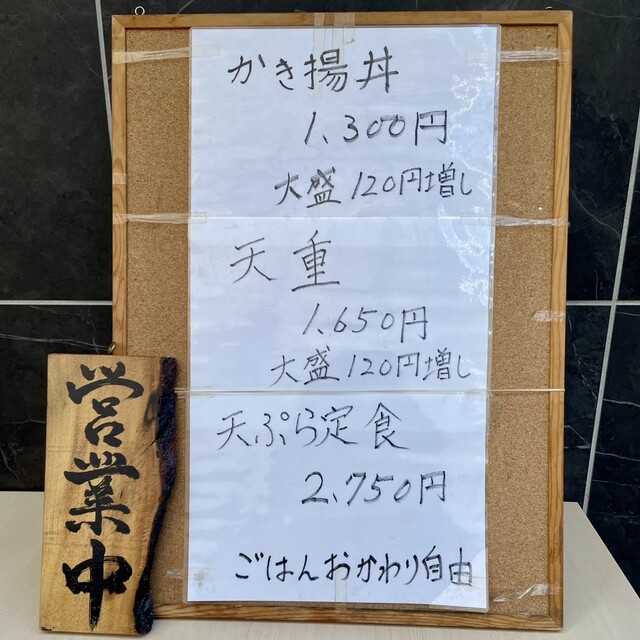 かき揚丼
1,300円
大盛 120円増し
天重
1,650円
大盛 120円増し
天ぷら定食
2,750円
ごはんおかわり自由
営業中